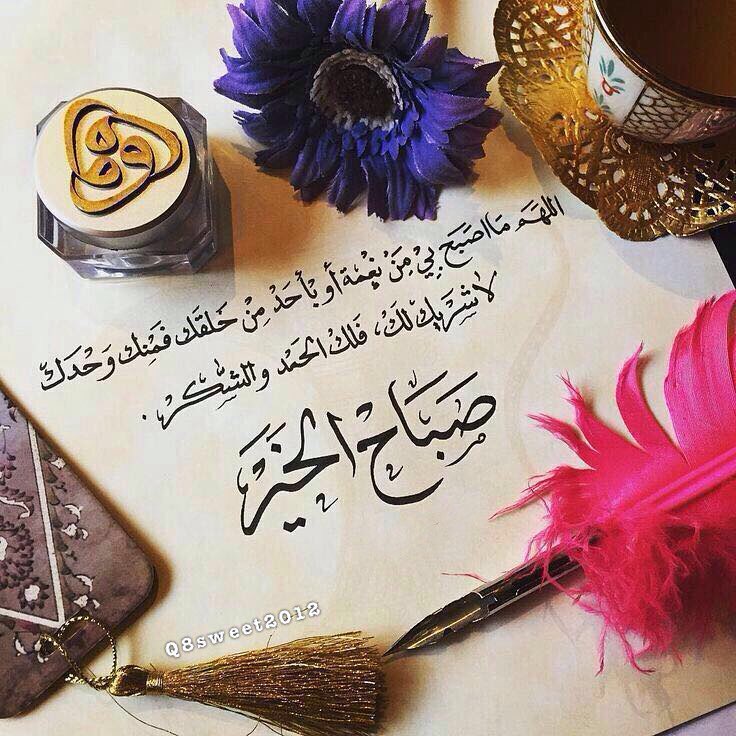 اللهَم مَا اصَبَح بِيْ مِنْ نِعْمَة أو بأحَدْ مِنْ خَلقَك فَمِنك وَحْدَكَ
لا شَرِيكَ لَكْ، فَلك الحَمْد والشكر.
صَبَاح الخَيْر
Q8sweet2012